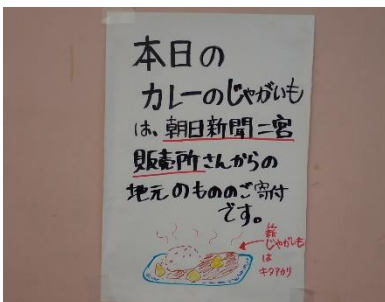 本日の
カレーのじゃがいも
は、朝日新聞二宮
販売所さんからの
地元のもののご寄付
です。
新
じゃがいも
は
キタアカリ